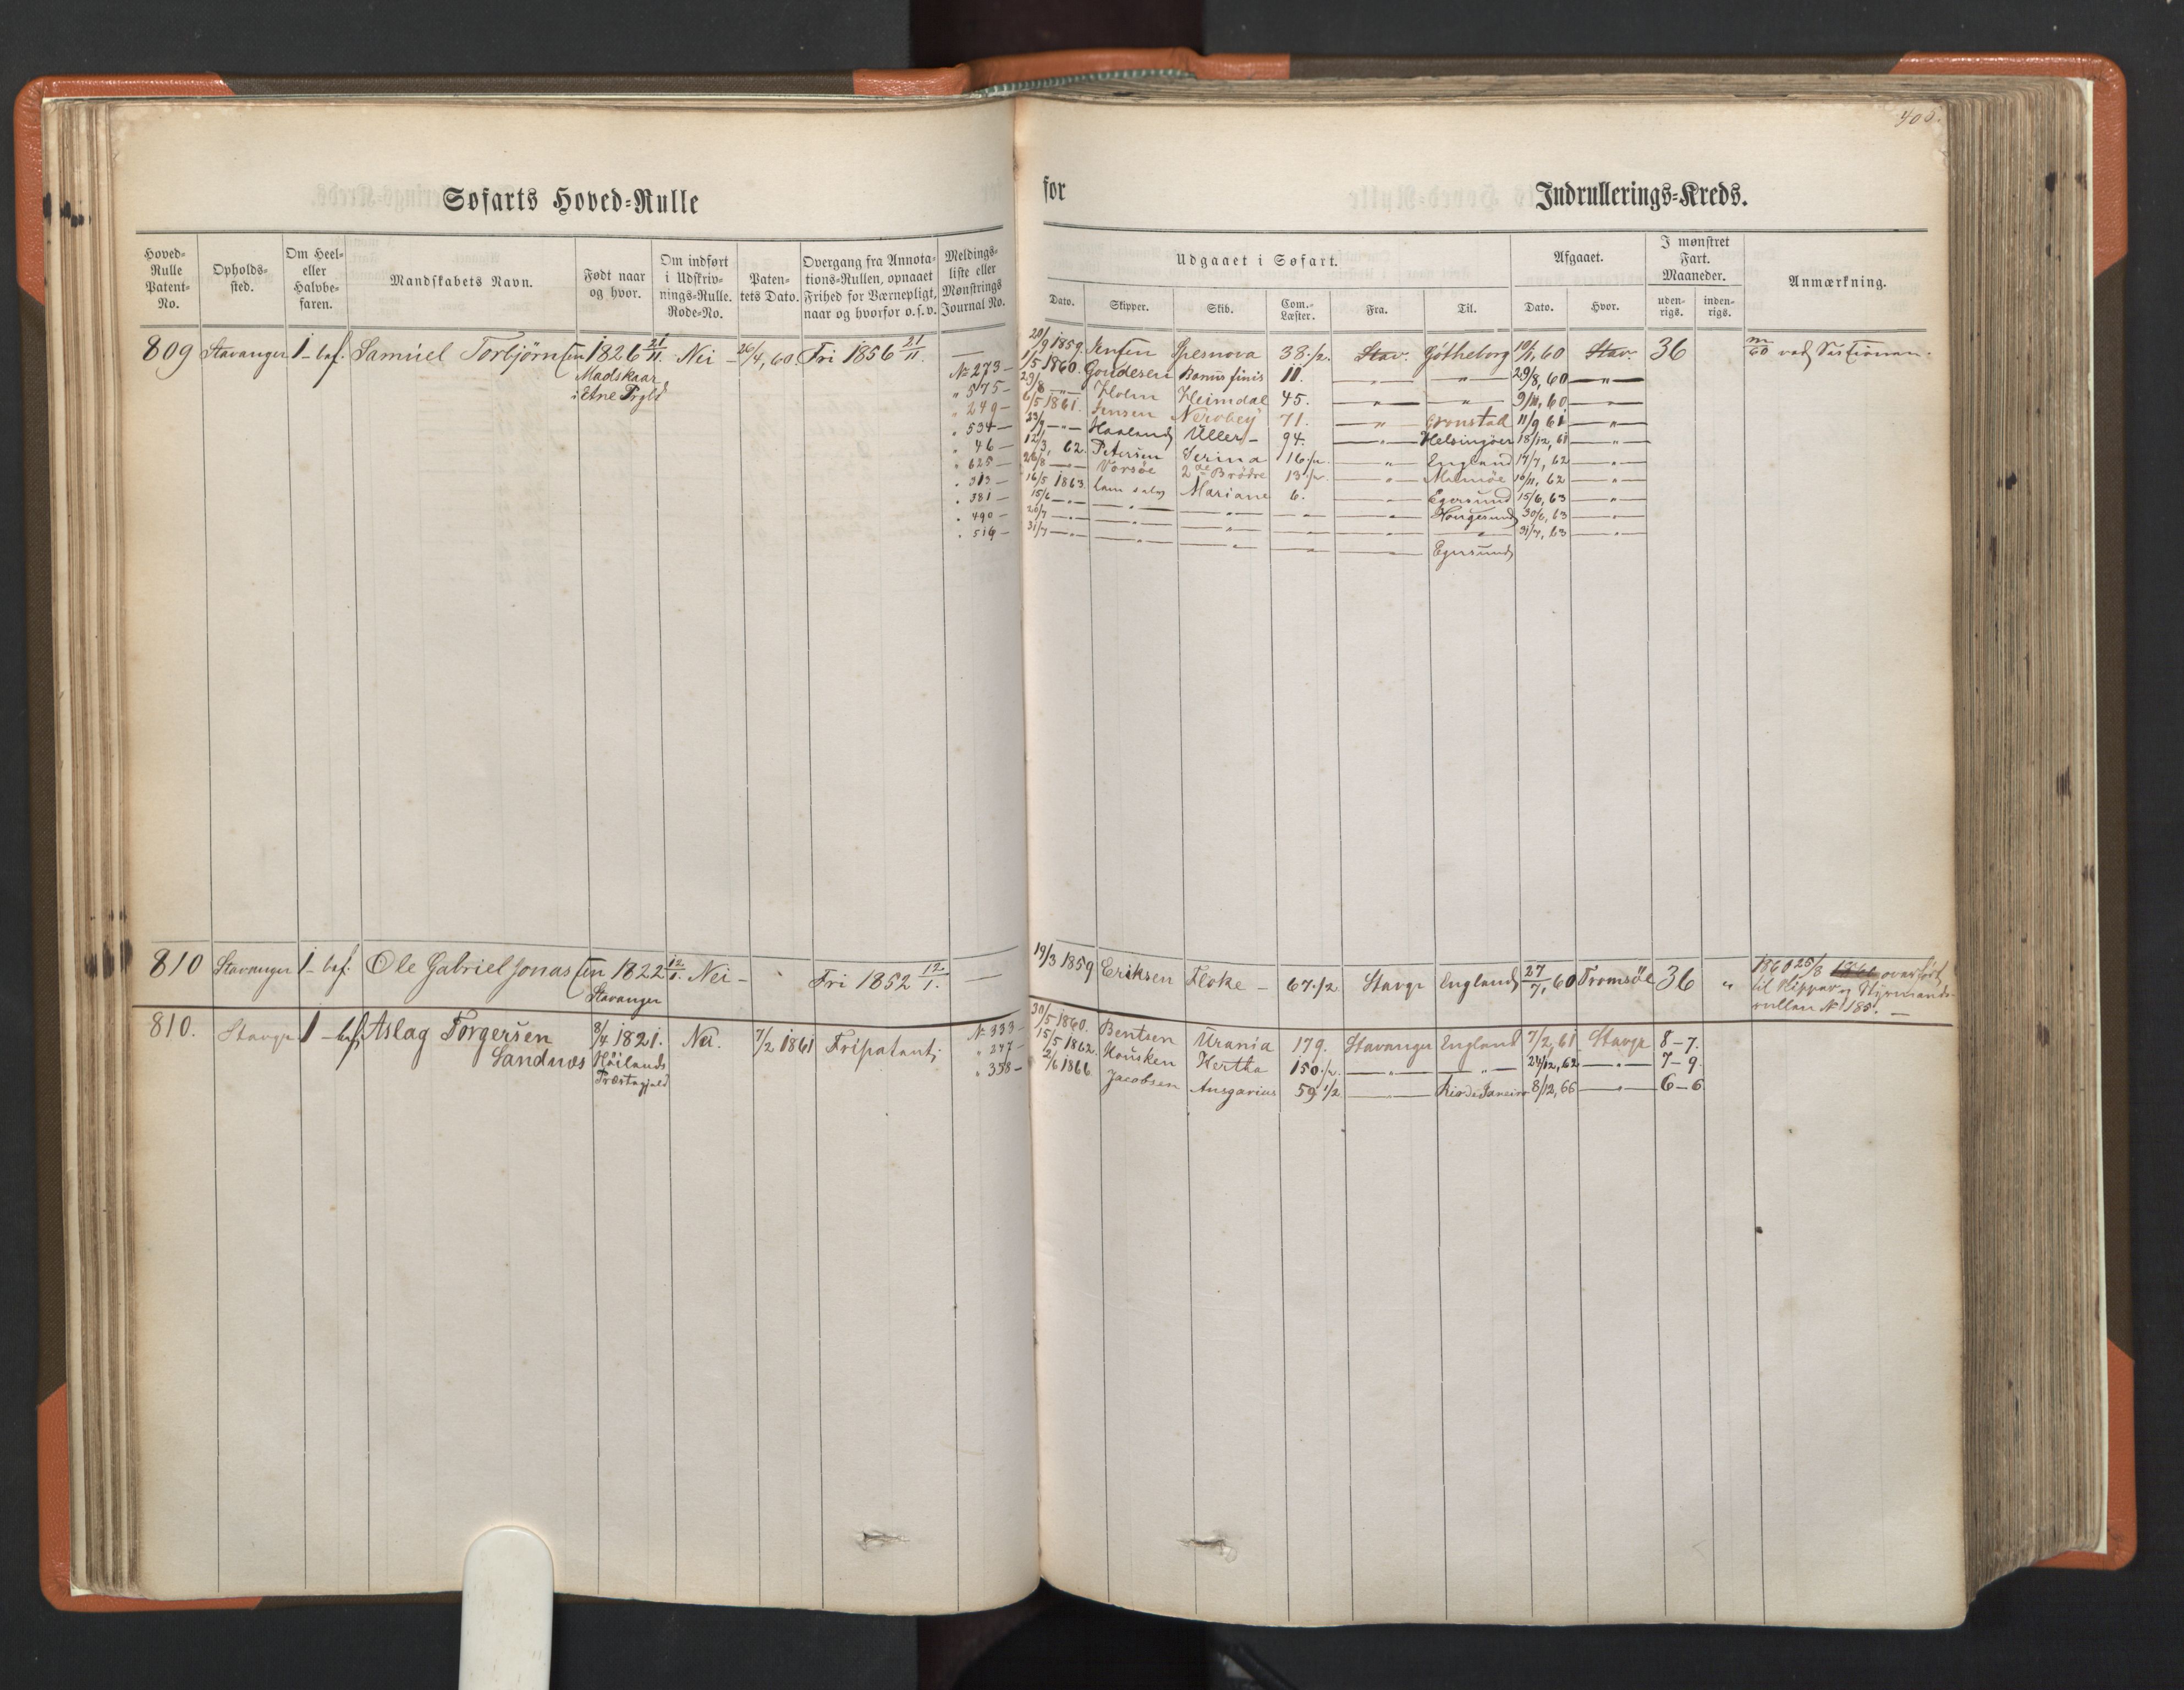 405.
Søfarts Hoved=Rulle
for Indrullerings=Kreds.
Hoved= Rulle Patent= No.
Opholds= sted.
Om Heel= eller Halvbe= faren.
Mandskabets Navn.
Født naar og hvor.
Om indført i Udskriv= nings=Rulle. Rode=No.
Paten= tets Dato.
Overgang fra Annota= tions=Rullen, opnaaet Frihed for Værnepligt, naar og hvorfor o. s. v.
Meldings= liste eller Mønstrings Journal No.
Udgaaet i Søfart.
Dato. Skipper. Skib. Com.= Læster. Fra. Til.
Afgaaet.
Dato. Hvor.
I mønstret Fart. Maaneder.
uden= rigs. inden= rigs.
Anmærkning.
809 Stavanger 1 – bef. Samuel Torbjørnsen 1826 21/11 Nei – 26/4, 60. Fri 1856 21/11. —
Madskaar
i Etne Prgld
20/9 1859. Jensen Spesnova 38 1/2. Stav. Gøtheborg 19/1, 60 Stav. 36
60 ved
No 273 – 1/5 1860. Goudesen Bonus finis 11. — " — — " — 29/8, 60 — " —
" 575 – 29/8 — " — Holm Heimdal 45. — " — — " — 9/11, 60 — " —
" 249 – 6/5 1861. Jensen 71. — " — Cronstad 11/9 61 — " —
" 534 – 23/9 — " — Haaland Uller – 94. — " — Helsingøer 18/12, 61 — " —
" 46 – 12/3, 62. Petersen Serina 16 1/2. — " — England 17/7, 62 — " —
" 625 – 26/8 — " — Vorsøe 2de Brødre 13 1/2. — " — Malmøe 10/11, 62 — " —
" 313 – 16/5 1863. ham selv Mariane 6. — " — Egersund 15/6, 63 — " —
" 381 – 15/6 — " — — " — — " — — " — — " — Hougesund 30/6, 63 — " —
" 490 – 20/7 — " — — " — — " — — " — — " — — " — 31/7, 63 — " —
" 516 – 31/7 — " — — " — — " — — " — — " — Egersund
810 Stavanger 1 – bef. Ole Gabriel Jonassen 1822 12/1. Nei – Fri 1852 12/1. —
Stavanger
19/3 1859 Eriksen Floke – 67 1/2 Stavgr England 27/7, 60 Tromsöe 36 "
1860 25/8 overført
til Skipper og Styrmands-
rullen No 185. —
810. Stavgr 1 – bef. Aslag Torgersen 8/4 1821. Nei. 7/2 1861 Fripatent
Sandnæs Høilands
Præstegjeld
No 333 – 30/5 1860. Bentsen Urania 179. Stavanger England 7/2, 61 Stavgr 8–7.
" 247 – 15/5 1862. Housken Hertha 150 1/2. — " — — " — 24/12, 62 — " — 7–9.
" 358 – 2/6 1866. Jacobsen Ansgarius 59 1/2 — " — Rio de Janeiro 8/12, 66 — " — 6–6